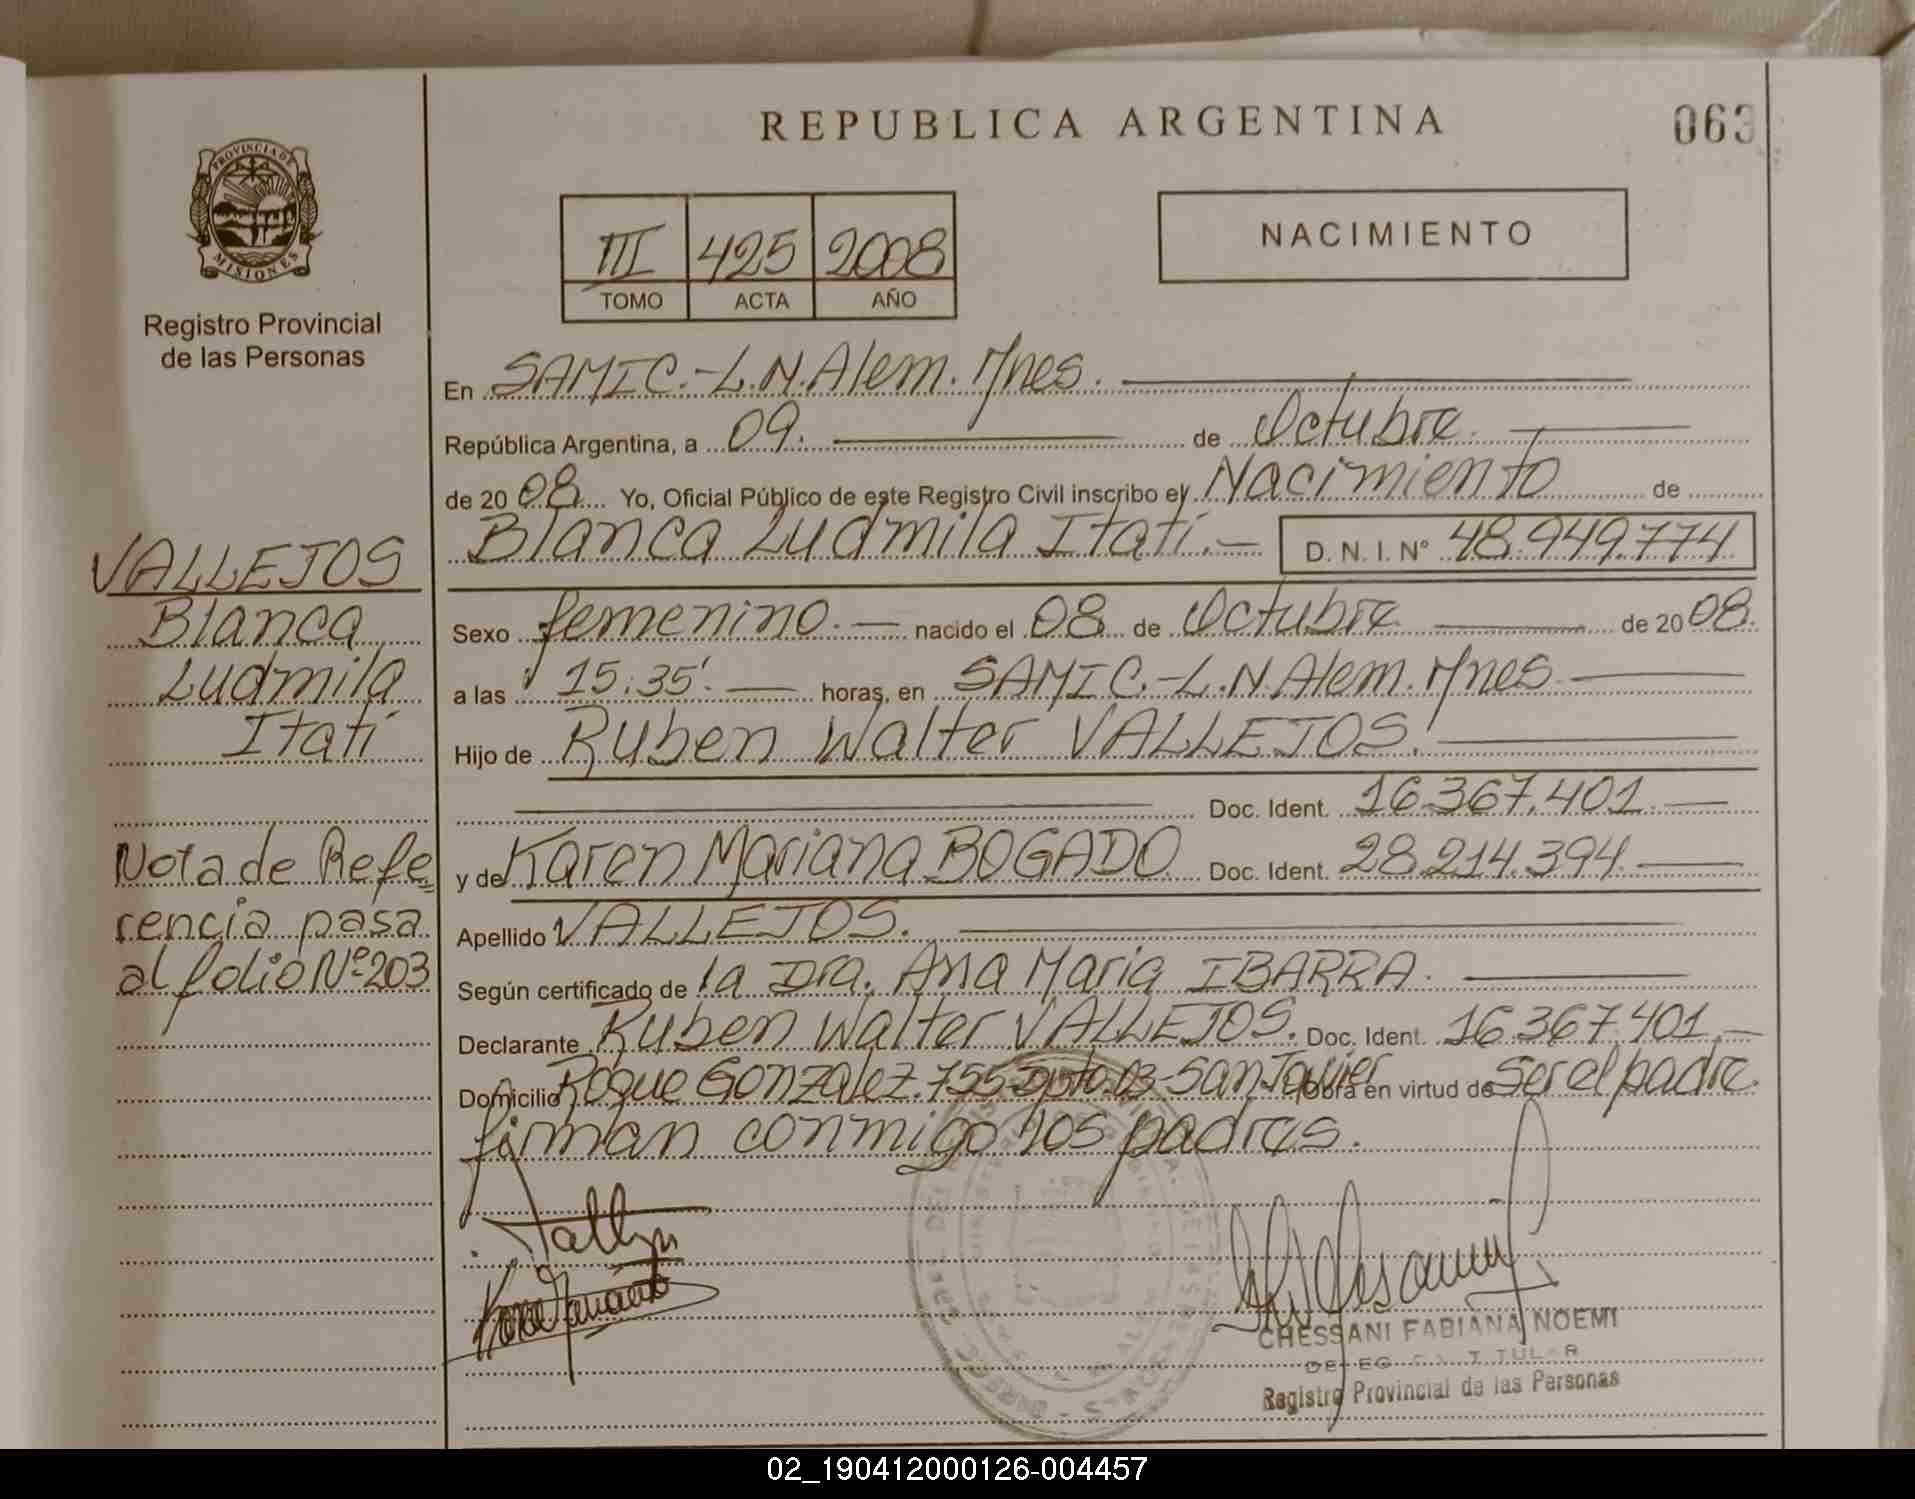 REPUBLICA ARGENTINA
063
PROVINCIA DE
MISIONES
Registro Provincial
de las Personas
III 425 2008
TOMO ACTA AÑO
NACIMIENTO
En SAMIC.-L.N.Alem.Mnes.
República Argentina, a 09. de Octubre.
de 20 08 Yo, Oficial Público de este Registro Civil inscribo el Nacimiento de
Blanca Ludmila Itatí.- D. N. I. Nº 48.949.774
Sexo femenino. nacido el 08 de Octubre de 20 08.
a las 15:35'. horas, en SAMIC.-L.N.Alem.Mnes
Hijo de Ruben Walter VALLEJOS.
Doc. Ident. 16.367.401.
y de Karen Mariana BOGADO Doc. Ident. 28.214.394.
Apellido VALLEJOS.
Según certificado de la Dra. Ana Maria IBARRA.
Declarante Ruben Walter VALLEJOS. Doc. Ident. 16.367.401.
Domicilio Roque Gonzalez.755-Dpto.03-San Javier Obra en virtud de Ser el padre.
firman conmigo los padres.
VALLEJOS
Blanca
Ludmila
Itatí
Nota de Refe=
rencia pasa
al folio Nº 203
CHESSANI FABIANA NOEMI
Registro Provincial de las Personas
02_190412000126-004457